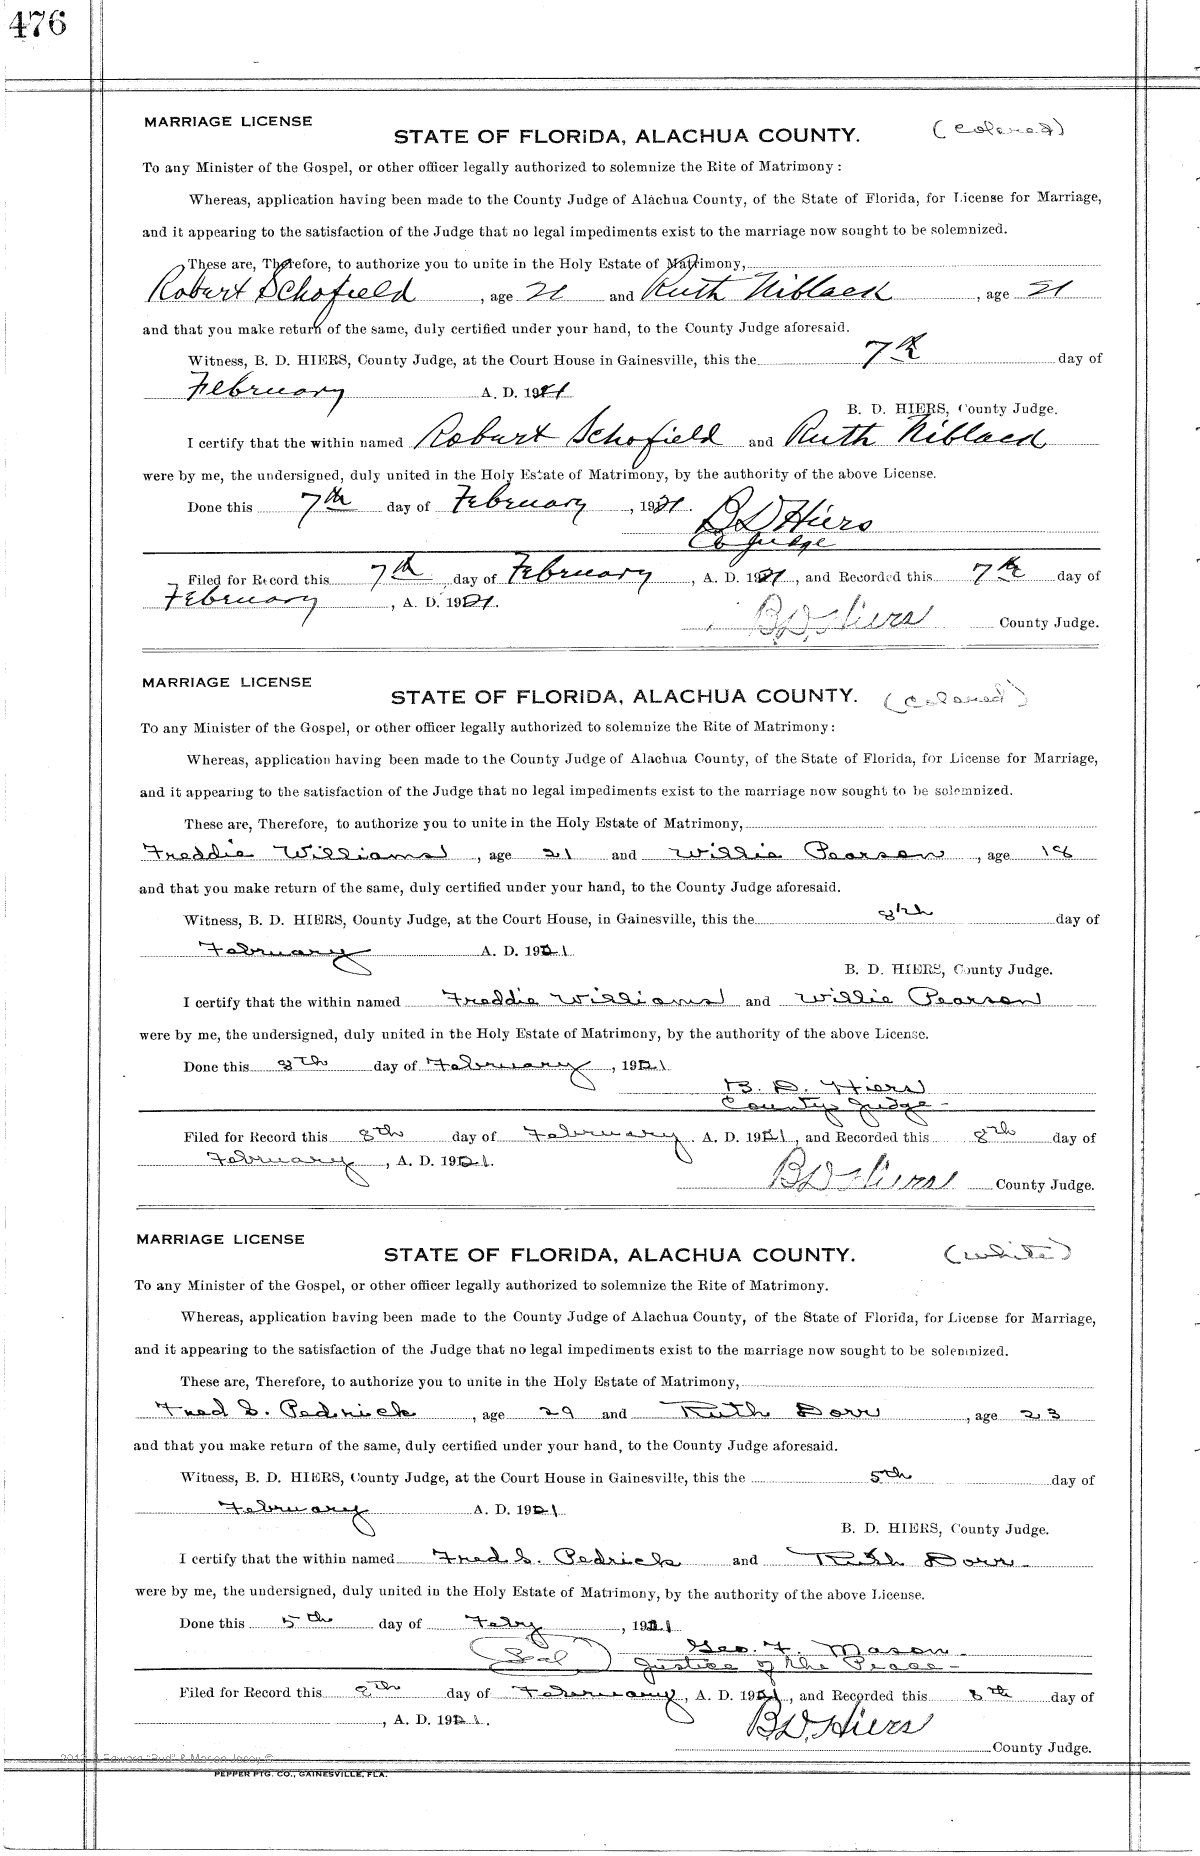 476
MARRIAGE LICENSE
STATE OF FLORIDA, ALACHUA COUNTY. (colored)
To any Minister of the Gospel, or other officer legally authorized to solemnize the Rite of Matrimony:
Whereas, application having been made to the County Judge of Alachua County, of the State of Florida, for License for Marriage,
and it appearing to the satisfaction of the Judge that no legal impediments exist to the marriage now sought to be solemnized.
These are, Therefore, to authorize you to unite in the Holy Estate of Matrimony,
Robert Schofield, age 21 and Ruth Niblack, age 21
and that you make return of the same, duly certified under your hand, to the County Judge aforesaid.
Witness, B. D. HIERS, County Judge, at the Court House in Gainesville, this the 7th day of
February A. D. 1921
B. D. HIERS, County Judge.
I certify that the within named Robert Schofield and Ruth Niblack
were by me, the undersigned, duly united in the Holy Estate of Matrimony, by the authority of the above License.
Done this 7th day of February, 1921.
B D Hiers
Co Judge
Filed for Record this 7th day of February, A. D. 1921, and Recorded this 7th day of
February, A. D. 1921.
B D Hiers County Judge.
MARRIAGE LICENSE
STATE OF FLORIDA, ALACHUA COUNTY. (colored)
To any Minister of the Gospel, or other officer legally authorized to solemnize the Rite of Matrimony:
Whereas, application having been made to the County Judge of Alachua County, of the State of Florida, for License for Marriage,
and it appearing to the satisfaction of the Judge that no legal impediments exist to the marriage now sought to be solemnized.
These are, Therefore, to authorize you to unite in the Holy Estate of Matrimony,
Freddie Williams, age 21 and Willie Pearson, age 18
and that you make return of the same, duly certified under your hand, to the County Judge aforesaid.
Witness, B. D. HIERS, County Judge, at the Court House, in Gainesville, this the 8th day of
February A. D. 1921
B. D. HIERS, County Judge.
I certify that the within named Freddie Williams and Willie Pearson
were by me, the undersigned, duly united in the Holy Estate of Matrimony, by the authority of the above License.
Done this 8th day of February, 1921
B. D. Hiers
County Judge-
Filed for Record this 8th day of February. A. D. 1921, and Recorded this 8th day of
February, A. D. 1921.
B D Hiers County Judge.
MARRIAGE LICENSE
STATE OF FLORIDA, ALACHUA COUNTY. (white)
To any Minister of the Gospel, or other officer legally authorized to solemnize the Rite of Matrimony.
Whereas, application having been made to the County Judge of Alachua County, of the State of Florida, for License for Marriage,
and it appearing to the satisfaction of the Judge that no legal impediments exist to the marriage now sought to be solemnized.
These are, Therefore, to authorize you to unite in the Holy Estate of Matrimony,
Fred S. Pedrick, age 29 and Ruth Dorr, age 23
and that you make return of the same, duly certified under your hand, to the County Judge aforesaid.
Witness, B. D. HIERS, County Judge, at the Court House in Gainesville, this the 5th day of
February A. D. 1921
B. D. HIERS, County Judge.
I certify that the within named Fred S. Pedrick and Ruth Dorr
were by me, the undersigned, duly united in the Holy Estate of Matrimony, by the authority of the above License.
Done this 5th day of Feby, 1921
Geo. F. Mason
(Seal) Justice of the Peace-
Filed for Record this 8th day of February, A. D. 1921, and Recorded this 8th day of
, A. D. 1921.
B. D. Hiers
County Judge.
PEPPER PTG. CO., GAINESVILLE, FLA.